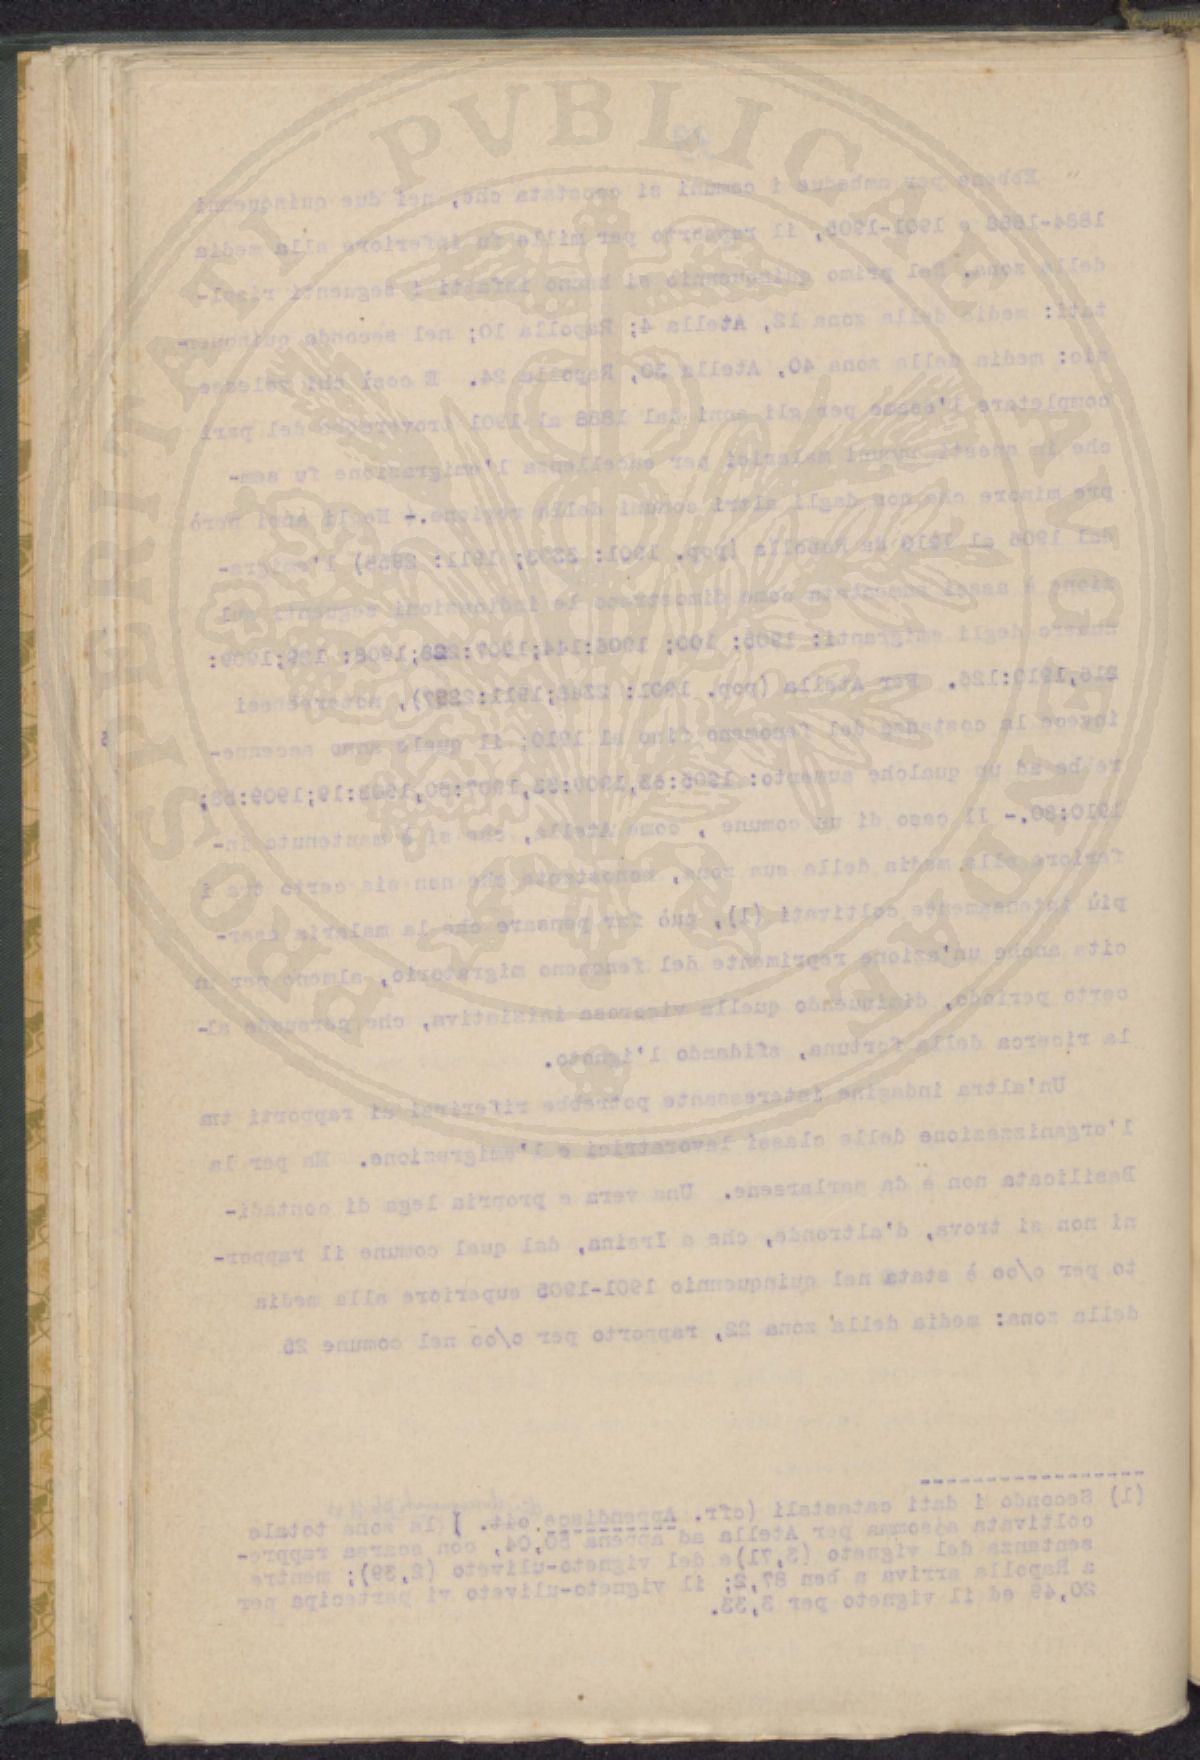 PROSPERITATI PVBLICAE AVGENDAE
" Ebbene per ambedue i comuni si constata che, nei due quinquenni
1884-1888 e 1901-1905, il rapporto per mille fu inferiore alla media
della zona. Nel primo quinquennio si hanno infatti i seguenti risul-
tati: media della zona 12, Atella 4; Rapolla 10; nel secondo quinquen-
nio: media della zona 40, Atella 30, Rapolla 24. E così chi volesse
completare l'esame per gli anni dal 1888 al 1901 troverebbe del pari
che in questi comuni malarici per eccellenza l'emigrazione fu sem-
pre minore che non dagli altri comuni della regione.- Negli anni però
dal 1906 al 1910 da Rapolla (pop. 1901: 1911: l'emigra-
zione è assai aumentata come dimostrano le indicazioni seguenti sul
numero degli emigranti: 1905: 100; 1906:144;1907:228;1908: 1909:
216,1910:126. Per Atella (pop. 1901: notereste
invece la costanza del fenomeno fino al 1910; il quale anno accenne-
rebbe ad un qualche aumento: 1905:63,
1910:80.- Il caso di un comune , come Atella, che si è mantenuto in-
feriore alla media della sua zona, nonostante che non sia certo tra i
più intensamente coltivati (1), può far pensare che la malaria eser-
cita anche un'azione reprimente del fenomeno migratorio, almeno per un
certo periodo, diminuendo quella vigorosa iniziativa, che persuade al-
la ricerca della fortuna, sfidando l'ignoto.
Un'altra indagine interessante potrebbe riferirsi ai rapporti tra
l'organizzazione delle classi lavoratrici e l'emigrazione. Ma per la
Basilicata non è da parlarsene. Una vera e propria lega di contadi-
ni non si trova, d'altronde, che a Irsina, dal qual comune il rappor-
to per o/oo è stata nel quinquennio 1901-1905 superiore alla media
della zona: media della zona 22, rapporto per o/oo nel comune 25
(1) Secondo i dati catastali (cfr. Appendice cit. ) la zona totale
coltivata ascomma per Atella ad appena 50,04, con scarsa rappre-
sentanza del vigneto (3,71)e del vigneto-uliveto (2,39); mentre
a Rapolla arriva a ben 87,2; il vigneto-uliveto vi partecipa per
20,49 ed il vigneto per 3,33.